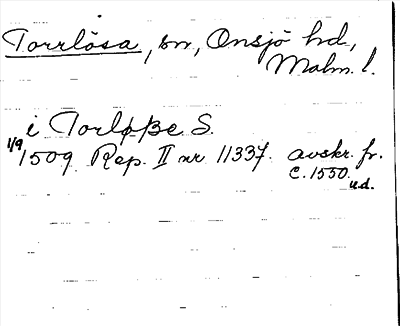 Torrlösa, sn, Onsjö hd.,
Malm. l.
i Torløsse S.
1/9 1509 Rep. II nr 11337. avskr. fr.
c. 1550.
u.d.